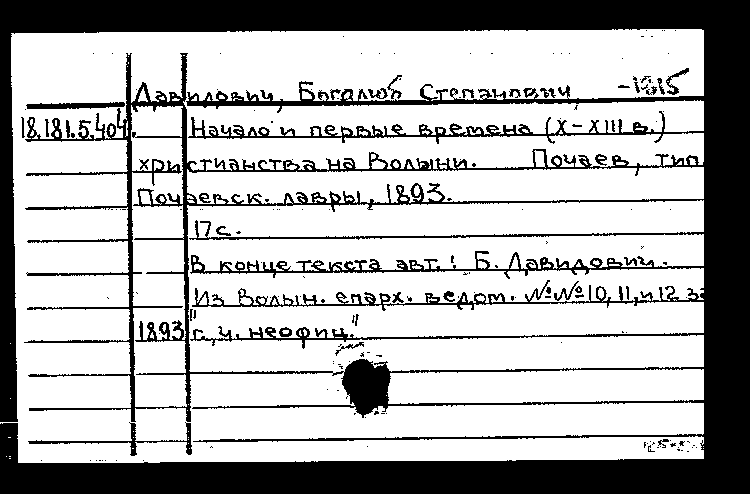 Давидович, Боголюб Степанович, -1815
18.181.5.404. Начало и первые времена (X-XIII в.)
христианства на Волыни. Почаев, тип.
Почаевск. лавры, 1893.
17 с.
В конце текста авт.: Б. Давидович.
Из "Волын. епарх. ведом. №№ 10, 11, и 12 за
1893 г., ч. неофиц."